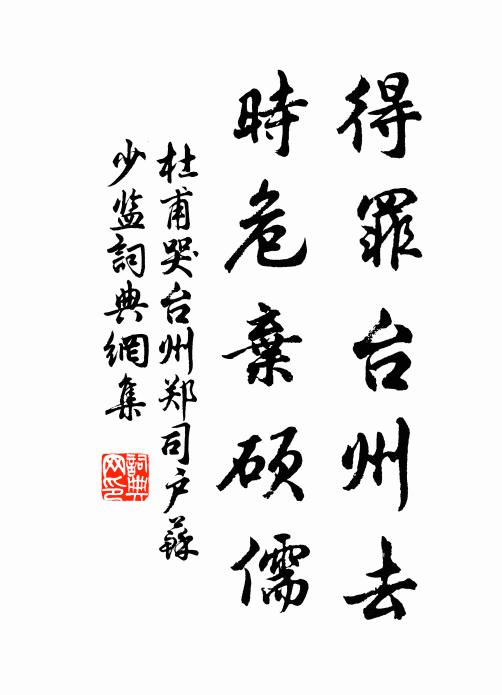 得罪台州去
時危棄碩儒
杜甫哭台州郑司户蘇
少监詞典網集
詞典
网印